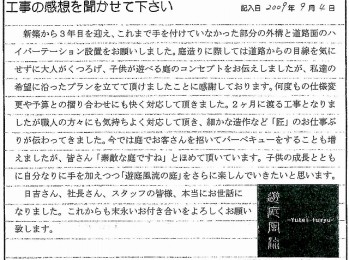 工事の感想を聞かせて下さい
記入日 2009年 9月 4日
新築から3年目を迎え、これまで手を付けていなかった部分の外構と道路面のハ
イパーテーション設置をお願いしました。庭造りに際しては道路からの目線を気に
せずに大人がくつろげ、子供が遊べる庭のコンセプトをお伝えしましたが、私達の
希望に沿ったプランを立てて頂けましたことに感謝しております。何度もの仕様変
更や予算との摺り合わせにも快く対応して頂きました。2ヶ月に渡る工事となりま
したが職人の方々にも気持ちよく対応して頂き、細かな造作など「匠」のお仕事ぶ
りが伝わってきました。今では庭でお客さんを招いてバーベキューをすることも増
えましたが、皆さん「素敵な庭ですね」とほめて頂いています。子供の成長ととも
に自分なりに手を加えつつ「遊庭風流の庭」をさらに楽しんでいきたいと思います。
日吉さん、社長さん、スタッフの皆様、本当にお世話に
なりました。これからも末永いお付き合いをよろしくお願い
致します。
遊庭風流
-Yutei-furyu-